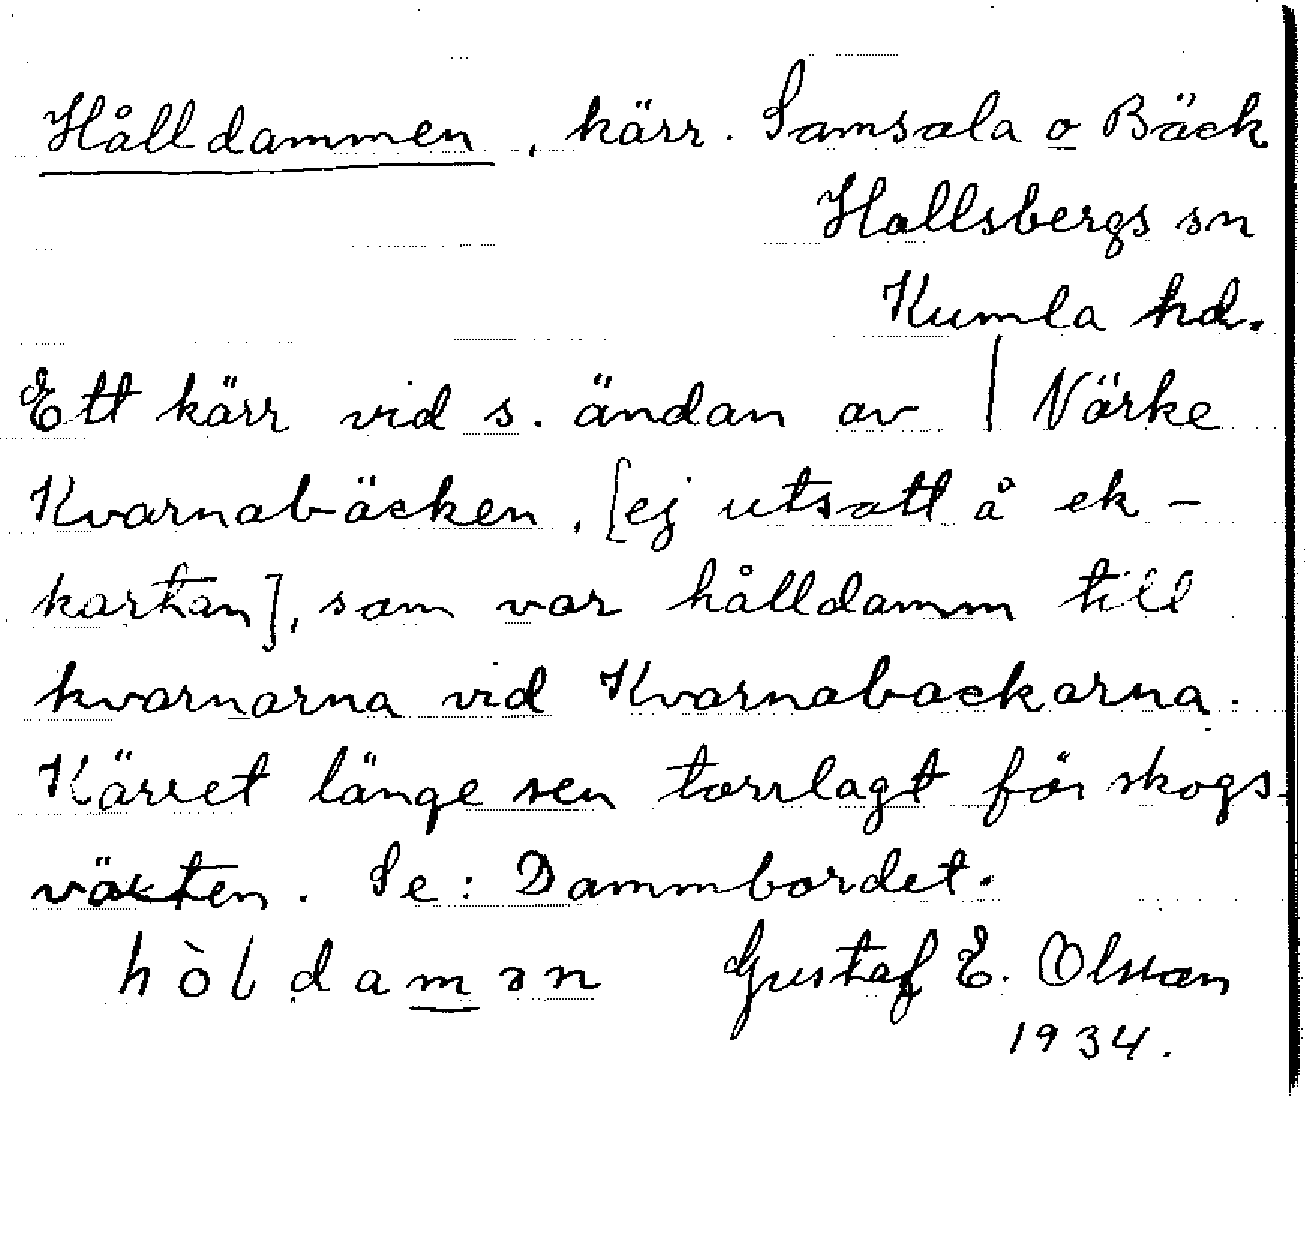 Hålldammen, kärr. Samsala o Bäck
Hallsbergs sn
Kumla hd.
Ett kärr vid s. ändan av | Närke
Kvarnabäcken, [ej utsatt å ek-
kartan], som var hålldamm till
kvarnarna vid Kvarnabackarna.
Kärret länge sen torrlagt för skogs
växten. Se: Dammbordet.
hòldamən Gustaf E. Olsson
1934.